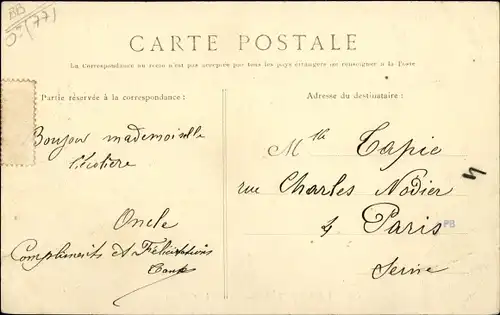 CARTE POSTALE
La Correspondance au recto n'est pas acceptée par tous les pays étrangers (se renseigner à la Poste
Partie réservée à la correspondance :
Adresse du destinataire :
Bonjour mademoiselle
l'écolière
Oncle
Compliments et Félicitations
Mlle Tapie
rue Charles Nodier
4
Paris
Seine
PB